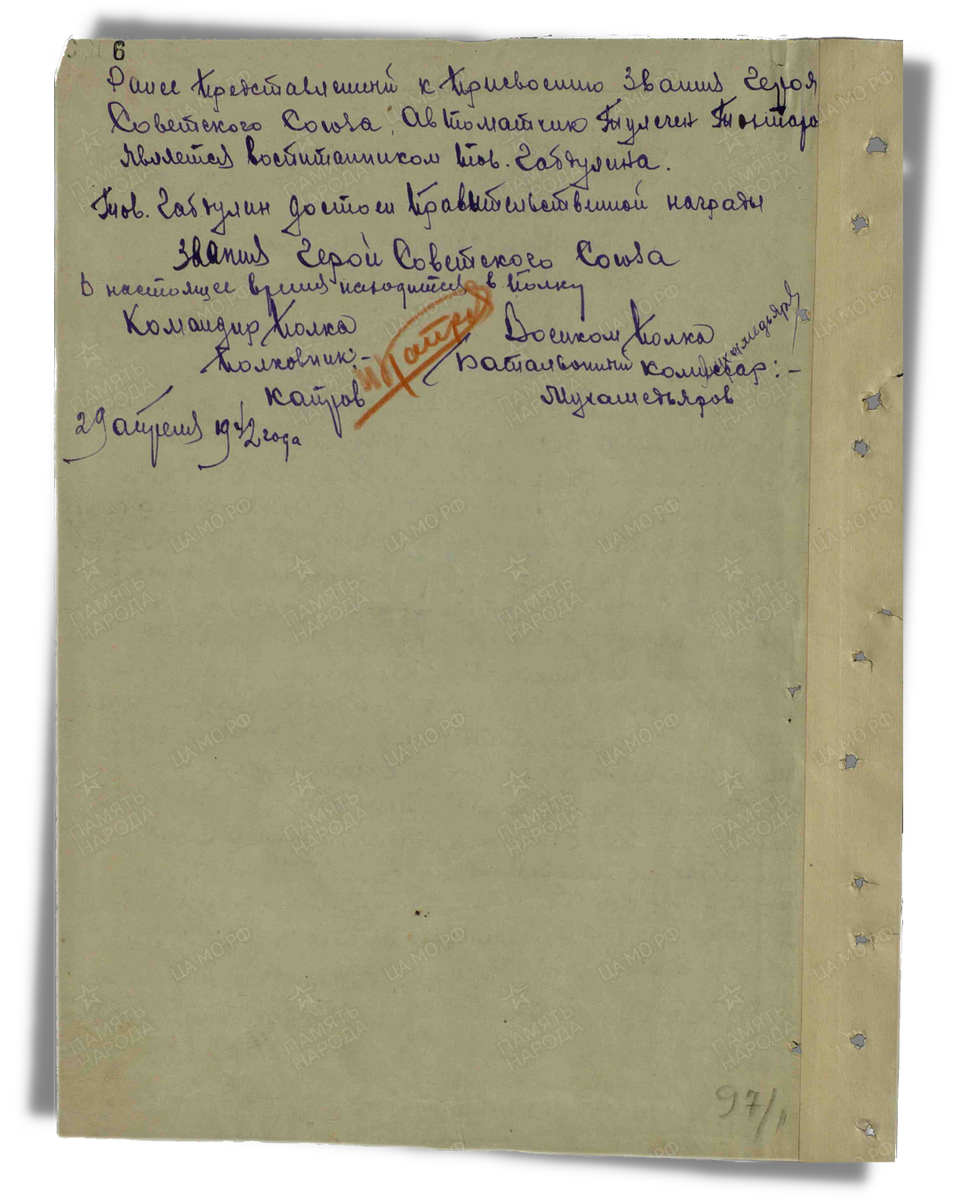 6
Ранее представленный к присвоению звания Героя
Советского Союза, Автоматчик Тулеген Тохтаро
является воспитанником тов. Габдулина.
Тов. Габдулин достоен правительственной награды
звания Герой Советского Союза
В настоящее время находится в полку
Командир полка
Полковник:-
Капров
Военком полка
Батальонный комиссар:-
Мухамедьяров
29 апреля 1942 года
97/1
ЦАМО.РФ
ПАМЯТЬ
НАРОДА